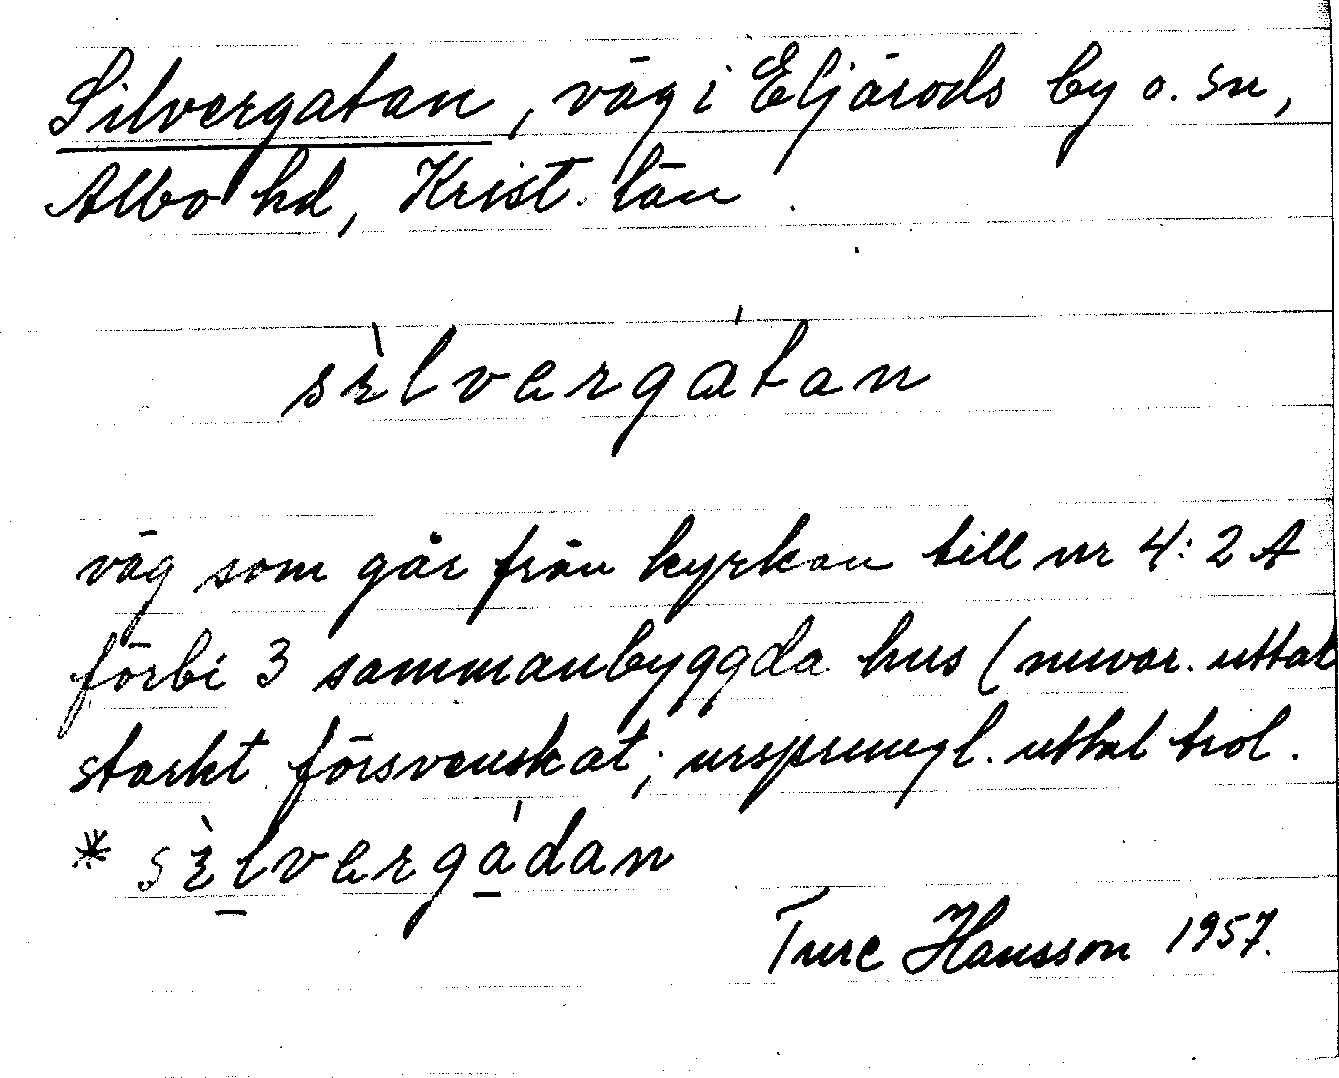 Silvergatan, väg i Eljaröds by o. sn,
Albo hd, Krist. län.
sìlvergátan
väg som går från kyrkan till nr 4:2 A
förbi 3 sammanbyggda hus (nuvar. uttal
starkt försvenskat; ursprungl. uttal trol.
* sìlvergádan
Ture Hansson 1957.